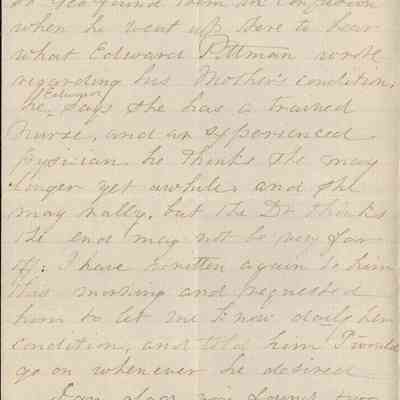 found them in confusion
when he went up there to hear
what Edward Pittman wrote
regarding his Mother's condition,
Edward
he, says she has a trained
Nurse, and an experienced
fysician. he thinks she may
linger yet awhile, and she
may rally, but the Dr. thinks
the end may not be very far
off: I have written again to him
this morning and requested
him to let me know daily her
condition, and told him I would
go on whenever he desired
I am glad you found two